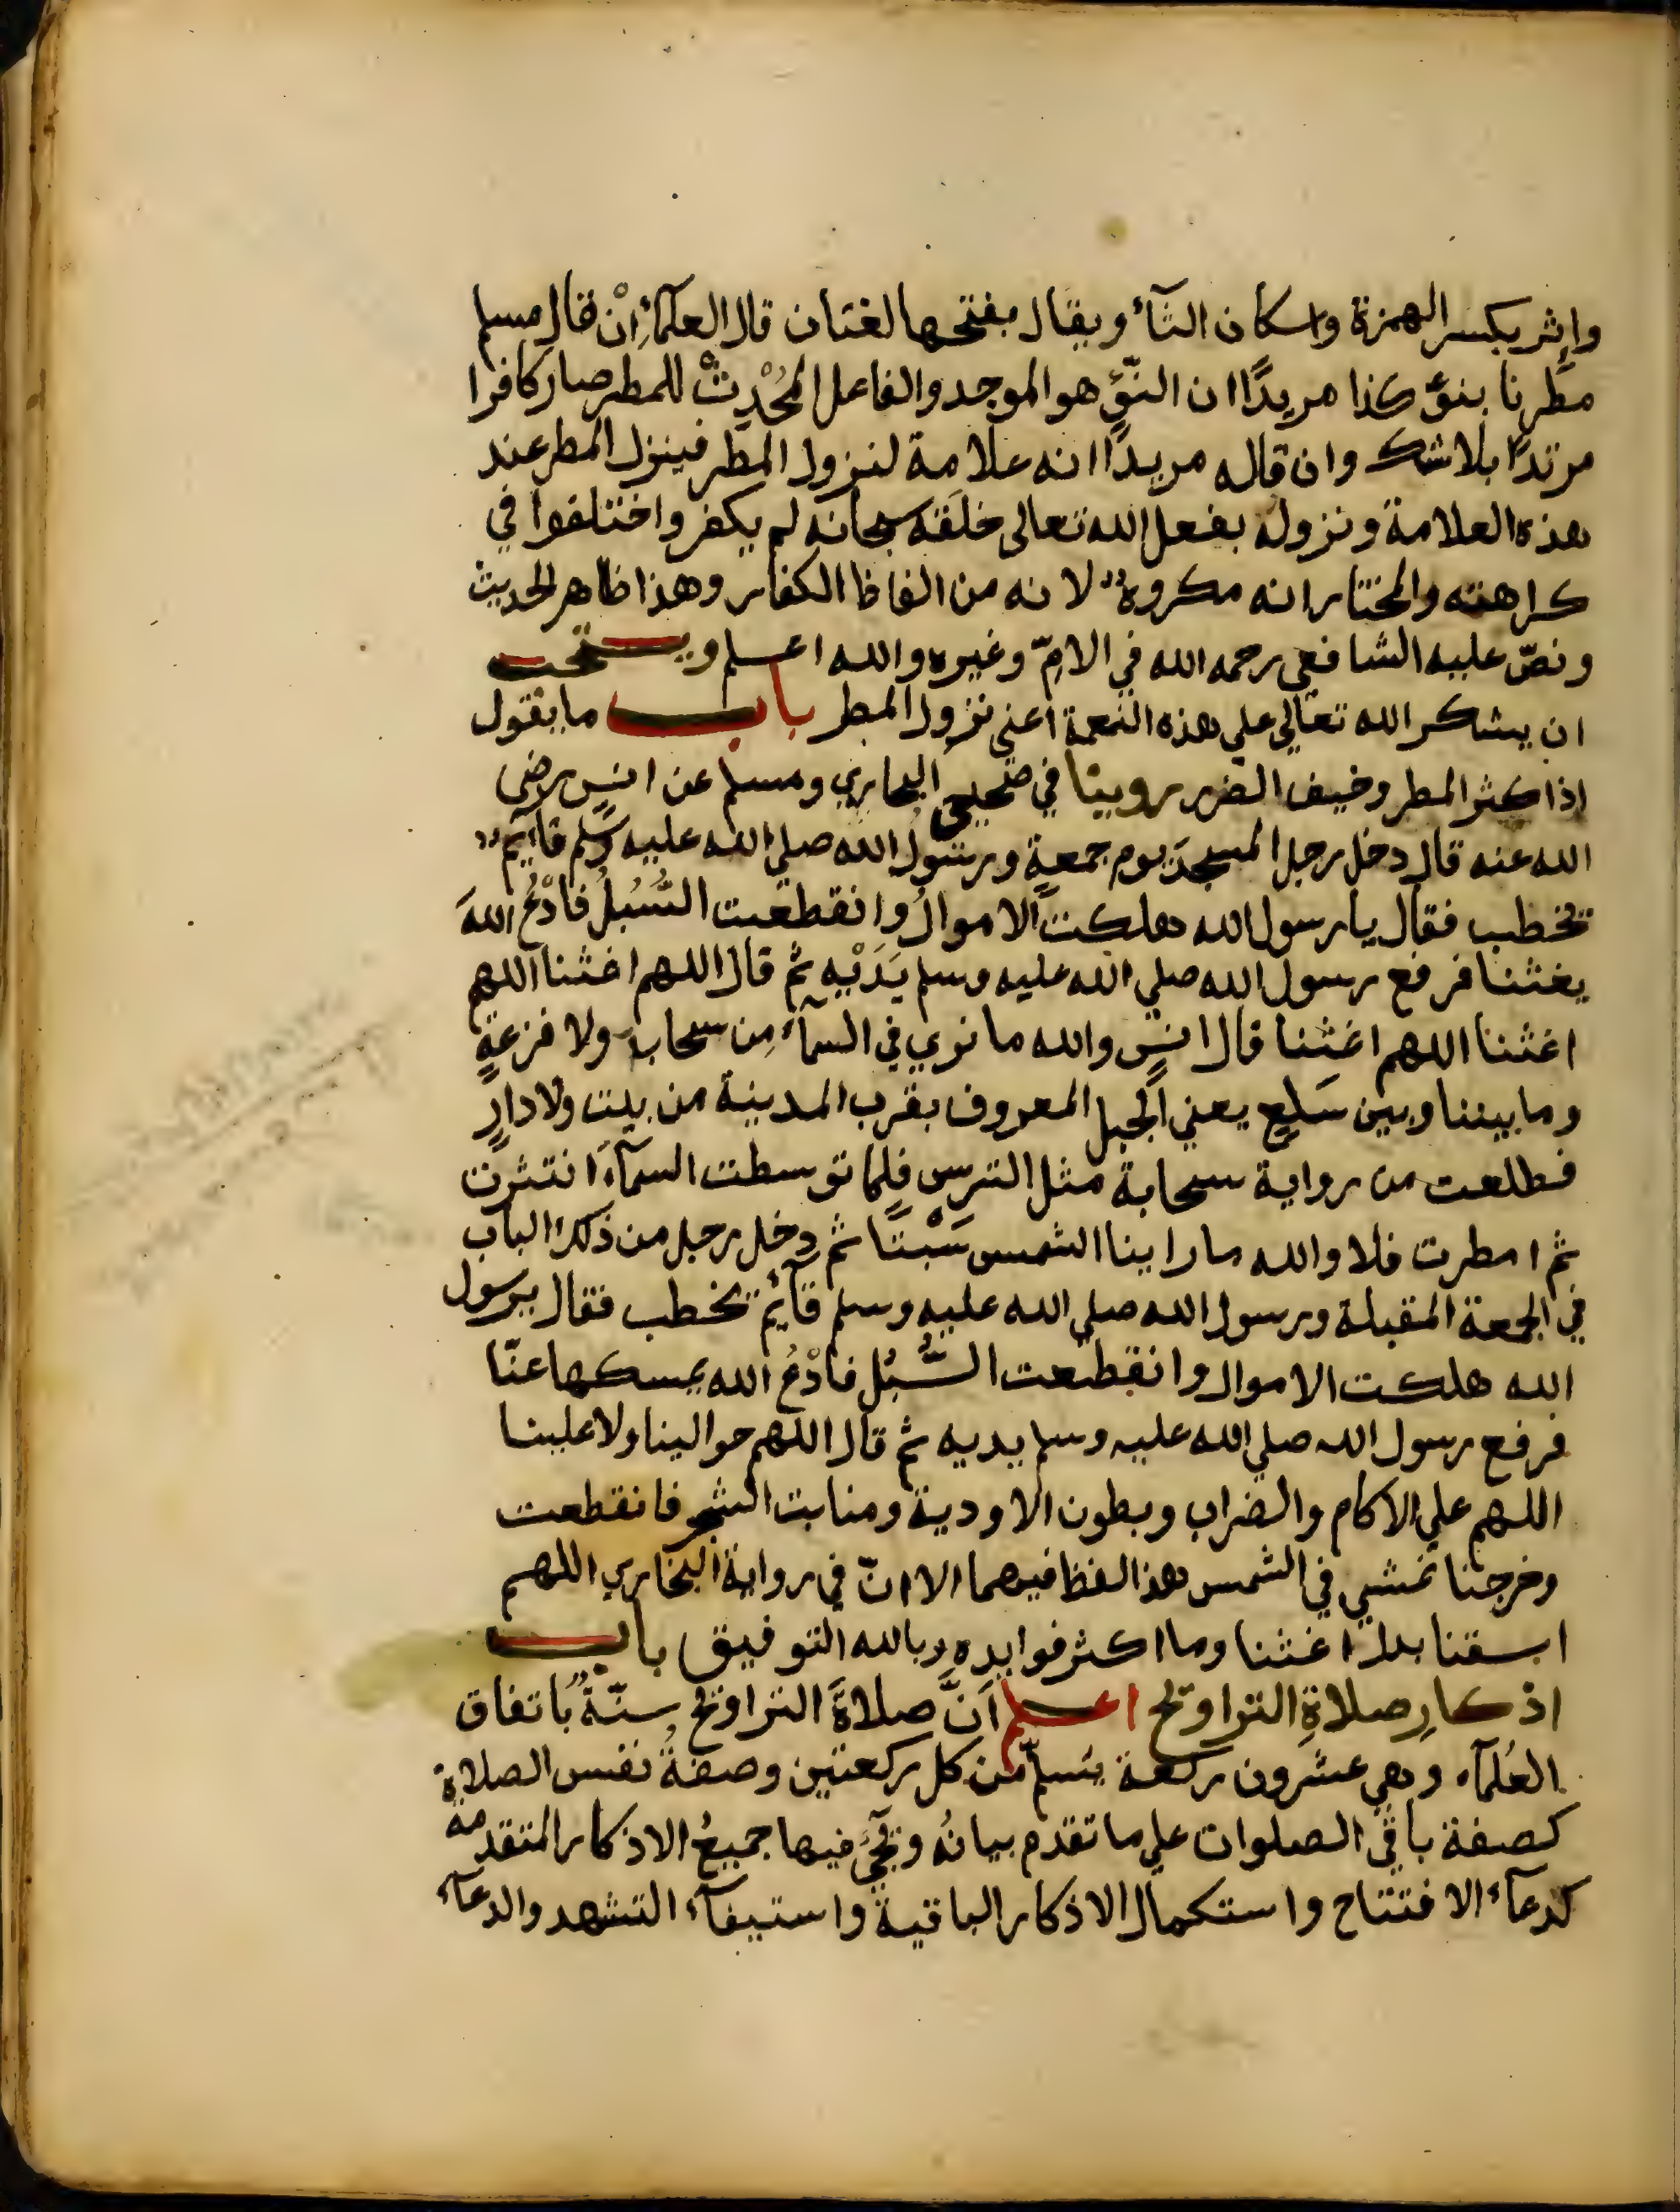 وإثر بكسر الهمزة واسكان الثآء ويقال بفتحها لغتان قال العلمآءِ إنْ قال مسلم
مطرنا بنوْءِ كذا مريدًا ان النّوْءِ هو الموجد والفاعل المُحْدِثْ للمطر صار كافرا
مرتدًا بلا شك وان قاله مريدًا انه علامة لنزول المطر فينزل المطر عند
هذه العلامة ونزوله بفعل الله تعالى خلقه سبحانه لم يكفر واختلفوا في
كراهته والمختار انه مكروهٌ لانه من الفاظ الكفار وهذا ظاهر الحديث
ونصّ عليه الشافعي رحمه الله في الامّ وغيره والله اعلم ويستحب
ان يشكر الله تعالي علي هذه النعمة اعني نزول المطر باب ما يقول
اذا كثر المطر وخيف الضرر روينا في صحيحي البخاري ومسلم عن انس رضي
الله عنه قال دخل رجل المسجدَ يوم جمعةٍ ورسولُ الله صلي الله عليه وسلم قآيمٌ
يخطب فقال يا رسول الله هلكت الاموالُ وانقطعت السُّبُلُ فادْعُ اللهَ
يغثنا فرفع رسول الله صلي الله عليه وسلم يَدَيْهِ ثم قال اللهم اغثنا اللهم
اغثنا اللهم اغثنا قال انس والله ما نري في السمآءِ مِن سحابٍ ولا قزعةٍ
وما بيننا وبين سَلعٍ يعني الجبل المعروف بقرب المدينة من بيت ولا دارٍ
فطلعت من رواية سحابة مثل الترس فلما توسطت السمآءَ انتثرت
ثم امطرت فلا والله ما راينا الشمس سَبْتًا ثم دخل رجل من ذلك الباب
في الجمعة المقبلة ورسول الله صلي الله عليه وسلم قآئم يخطب فقال يرسول
الله هلكت الاموال وانقطعت السُّبُل فادْعُ الله يمسكها عنّا
فرفع رسول الله صلي الله عليه وسلم يديه ثم قال اللهم حوالينا ولا علينا
اللهم علي الاكام والضراب وبطون الاودية ومنابت الشجر فانقطعت
وخرجنا نمشي في الشمس هذا لفظ فيهما الا انّ في رواية البخاري اللهم
اسقنا بدل اغثنا وما اكثر فوايده وبالله التوفيق باب
اذكارِ صلاةِ التراويح اعلم اَنَّ صلاةَ التراويح سنّةٌ باتفاق
العُلمآء وهي عشرون ركعة يُسلّم من كل ركعتين وصفةُ نفس الصلاة
كصفة باقي الصلوات علي ما تقدم بيانُه ويجئُ فيها جميعُ الاذكار المتقدمة
كدعآء الافتتاح واستكمال الاذكار الباقية واستيفآء التشهد والدعآء